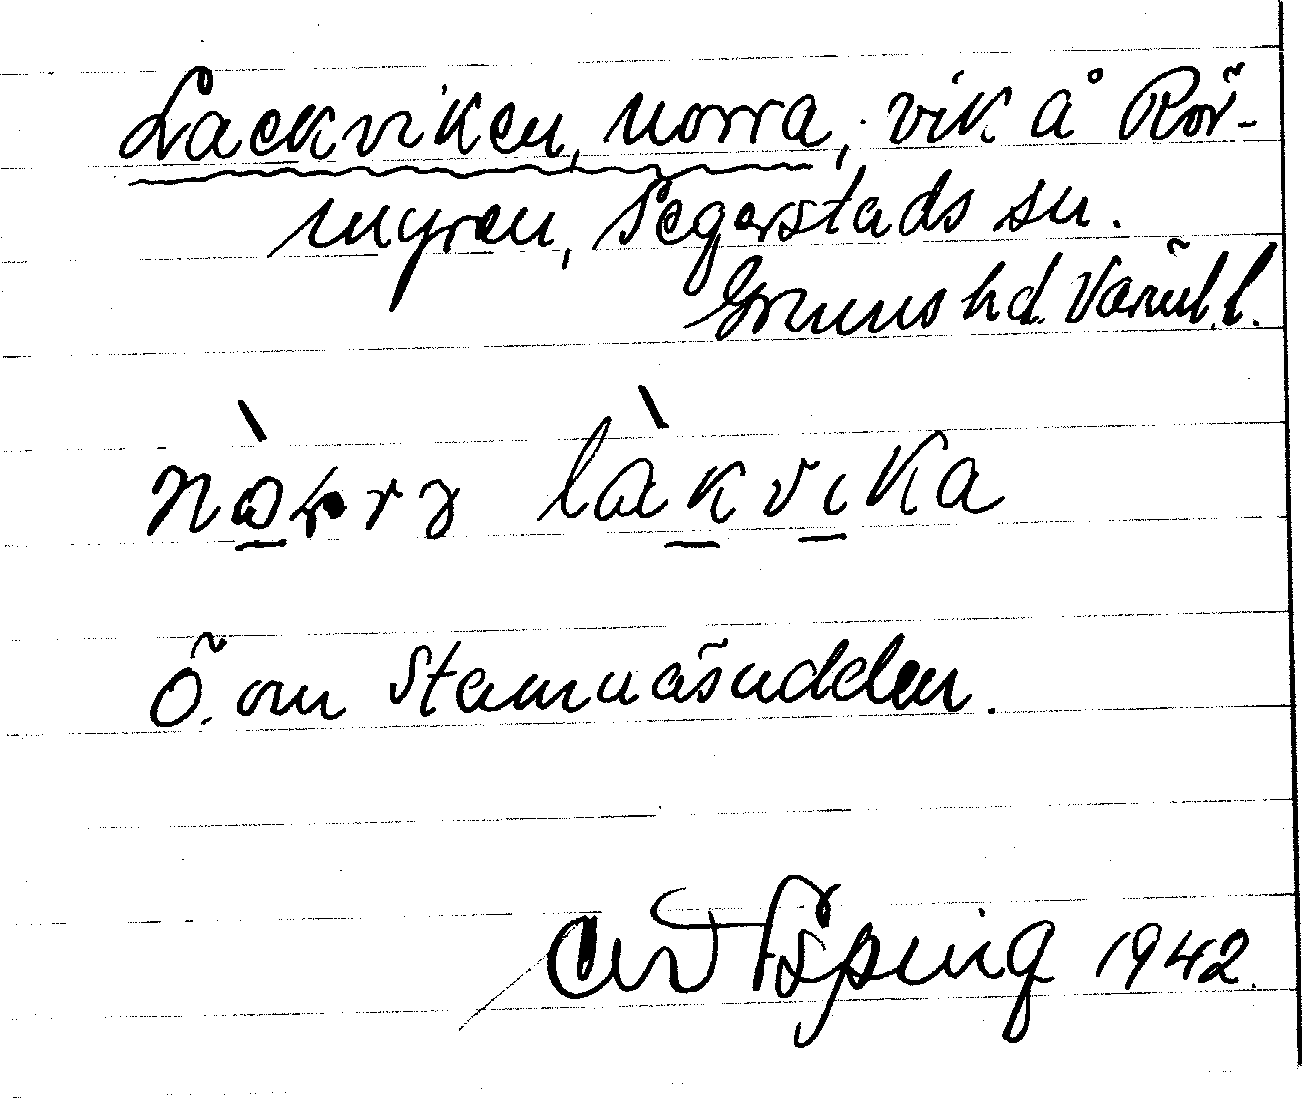 Lackviken, norra, vik å Rör-
myren, Segerstads sn.
Grums hd. Värml. l.
nò̱rrɔ làḵvi̱ka
Ö. om Stamnäsudden.
1942.